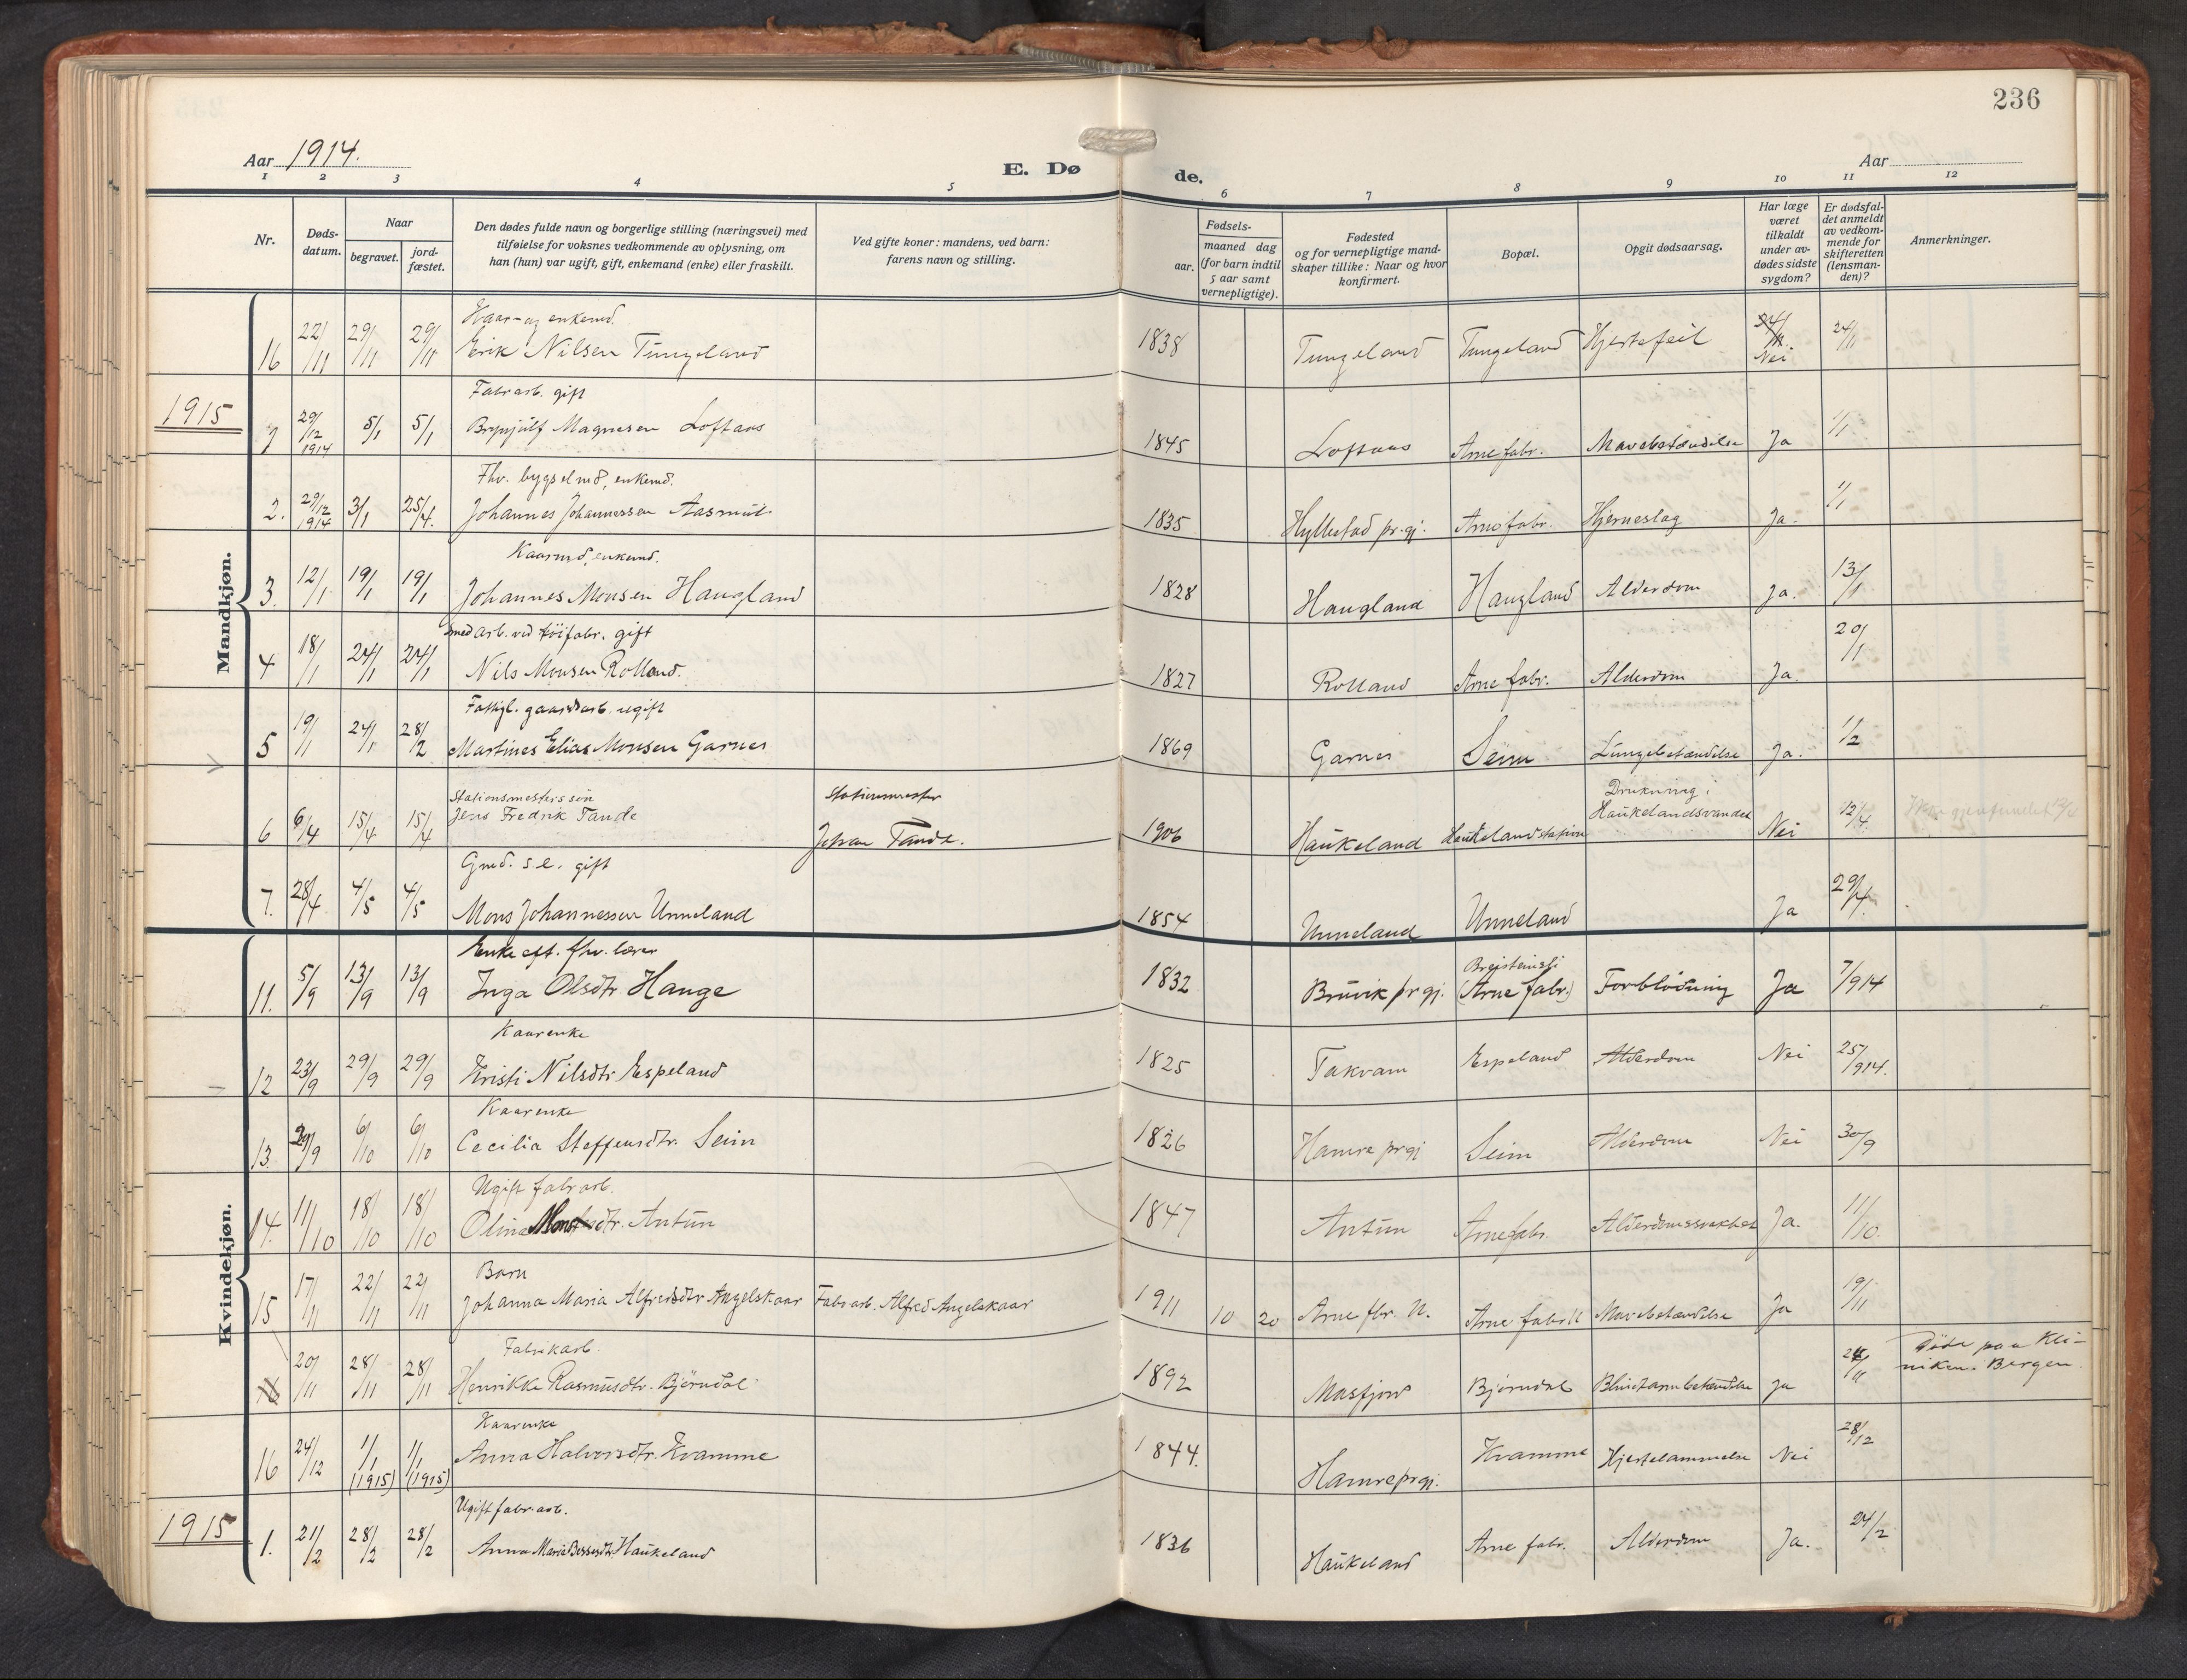 236
Aar 1914.
E. Dø de.
Aar
1 2 3 4 5 6 7 8 9 10 11 12
Nr.
Døds-datum.
Naar
begravet.
jord-fæstet.
Den dødes fulde navn og borgerlige stilling (næringsvei) med
tilføielse for voksnes vedkommende av oplysning, om
han (hun) var ugift, gift, enkemand (enke) eller fraskilt.
Ved gifte koner: mandens, ved barn:
farens navn og stilling.
Fødsels-
aar.
maaned dag
(for barn indtil
5 aar samt
vernepligtige).
Fødested
og for vernepligtige mand-
skaper tillike: Naar og hvor
konfirmert.
Bopæl.
Opgit dødsaarsag.
Har læge
været
tilkaldt
under av-
dødes sidste
sygdom?
Er dødsfal-
det anmeldt
av vedkom-
mende for
skifteretten
(lensman-
den)?
Anmerkninger.
Mandkjøn.
Kaar- og enkemd.
16 22/11 29/11 29/11 Erik Nilsen Tungeland 1838 Tungeland Tungeland Hjertefeil Nei 24/11
1915
Fabrarb. gift
1 29/12 1914 5/1 5/1 Brynjulf Magnesen Loftaas 1845 Loftaas Arne fabr. Mavebetændelse Ja 1/1
Fhv. bygselmd, enkemd.
2. 29/12 1914 3/1 25/4. Johannes Johannessen Aasmul 1835 Hyllestad pr.gj. Arne fabr. Hjerneslag Ja. 1/1
Kaarmd, enkemd.
3. 12/1 19/1 19/1 Johannes Monsen Haugland 1828 Haugland Haugland Alderdom Ja. 13/1
arb. ved töifabr. gift
4 18/1 24/1 24/1 Nils Monsen Rolland. 1827 Rolland Arne fabr. Alderdom Ja. 20/1
Fattigl. gaardsarb. ugift
5 19/1 24/1 28/2 Martines Elias Monsen Garnes 1869 Garnes Seim Lungebetændelse Ja. 1/2
Stationsmesterssön
6 6/4 15/4 15/4 Jens Fredrik Tande Stationsmester Johan Tande. 1906 Haukeland Haukeland station Drukning i Haukelandsvandet Nei 12/4
Gmd. s.e. gift
7. 28/4 4/5 4/5 Mons Johannessen Unneland 1854 Unneland Unneland Ja 29/4.
Kvindekjøn.
Enke eft. fhv. lærer
11. 5/9 13/9 13/9 Inga Olsdtr Hauge 1832 Bruvik pr gj. Breisteinsli (Arne fabr.) Forblödning Ja 7/9 14
Kaarenke
12 23/9 29/9 29/9 Kristi Nilsdtr Espeland 1825 Takvam Espeland Alderdom Nei 25/9 14.
Kaarenke
13. 29/9 6/10 6/10 Cecilia Steffensdtr. Seim 1826 Hamre prgj Seim Alderdom Nei 30/9
Ugift fabrarb.
14. 11/10 18/10 18/10 Olina Monsdtr. Antun 1847 Antun Arne fabr. Alderdomssvakhet Ja. 11/10.
Barn
15 17/11 22/11 22/11 Johanna Maria Alfredsdtr Angelskaar Fabrarb. Alfred Angelskaar 1911 10 20 Arne fbr. N. Arne fabrik Mavebetændelse Ja 19/11
Fabrikarb.
16 20/11 28/11 28/11 Henrikke Rasmusdtr. Björndal 1892 Masfjord Björndal Blindtarmbetændelse Ja 24/11 Döde paa Kli-
niken. Bergen.
Kaarenke
16 24/12 1/1 (1915) 1/1 (1915) Anna Halvorsdtr. Kvamme 1844. Hamre prgj. Kvamme Hjertelammelse Nei 28/12
1915
Ugift fabr.arb.
1. 21/2 28/2 28/2 Anna Maria Bessesdtr. Haukeland 1836 Haukeland Arne fabr. Alderdom Ja. 24/2